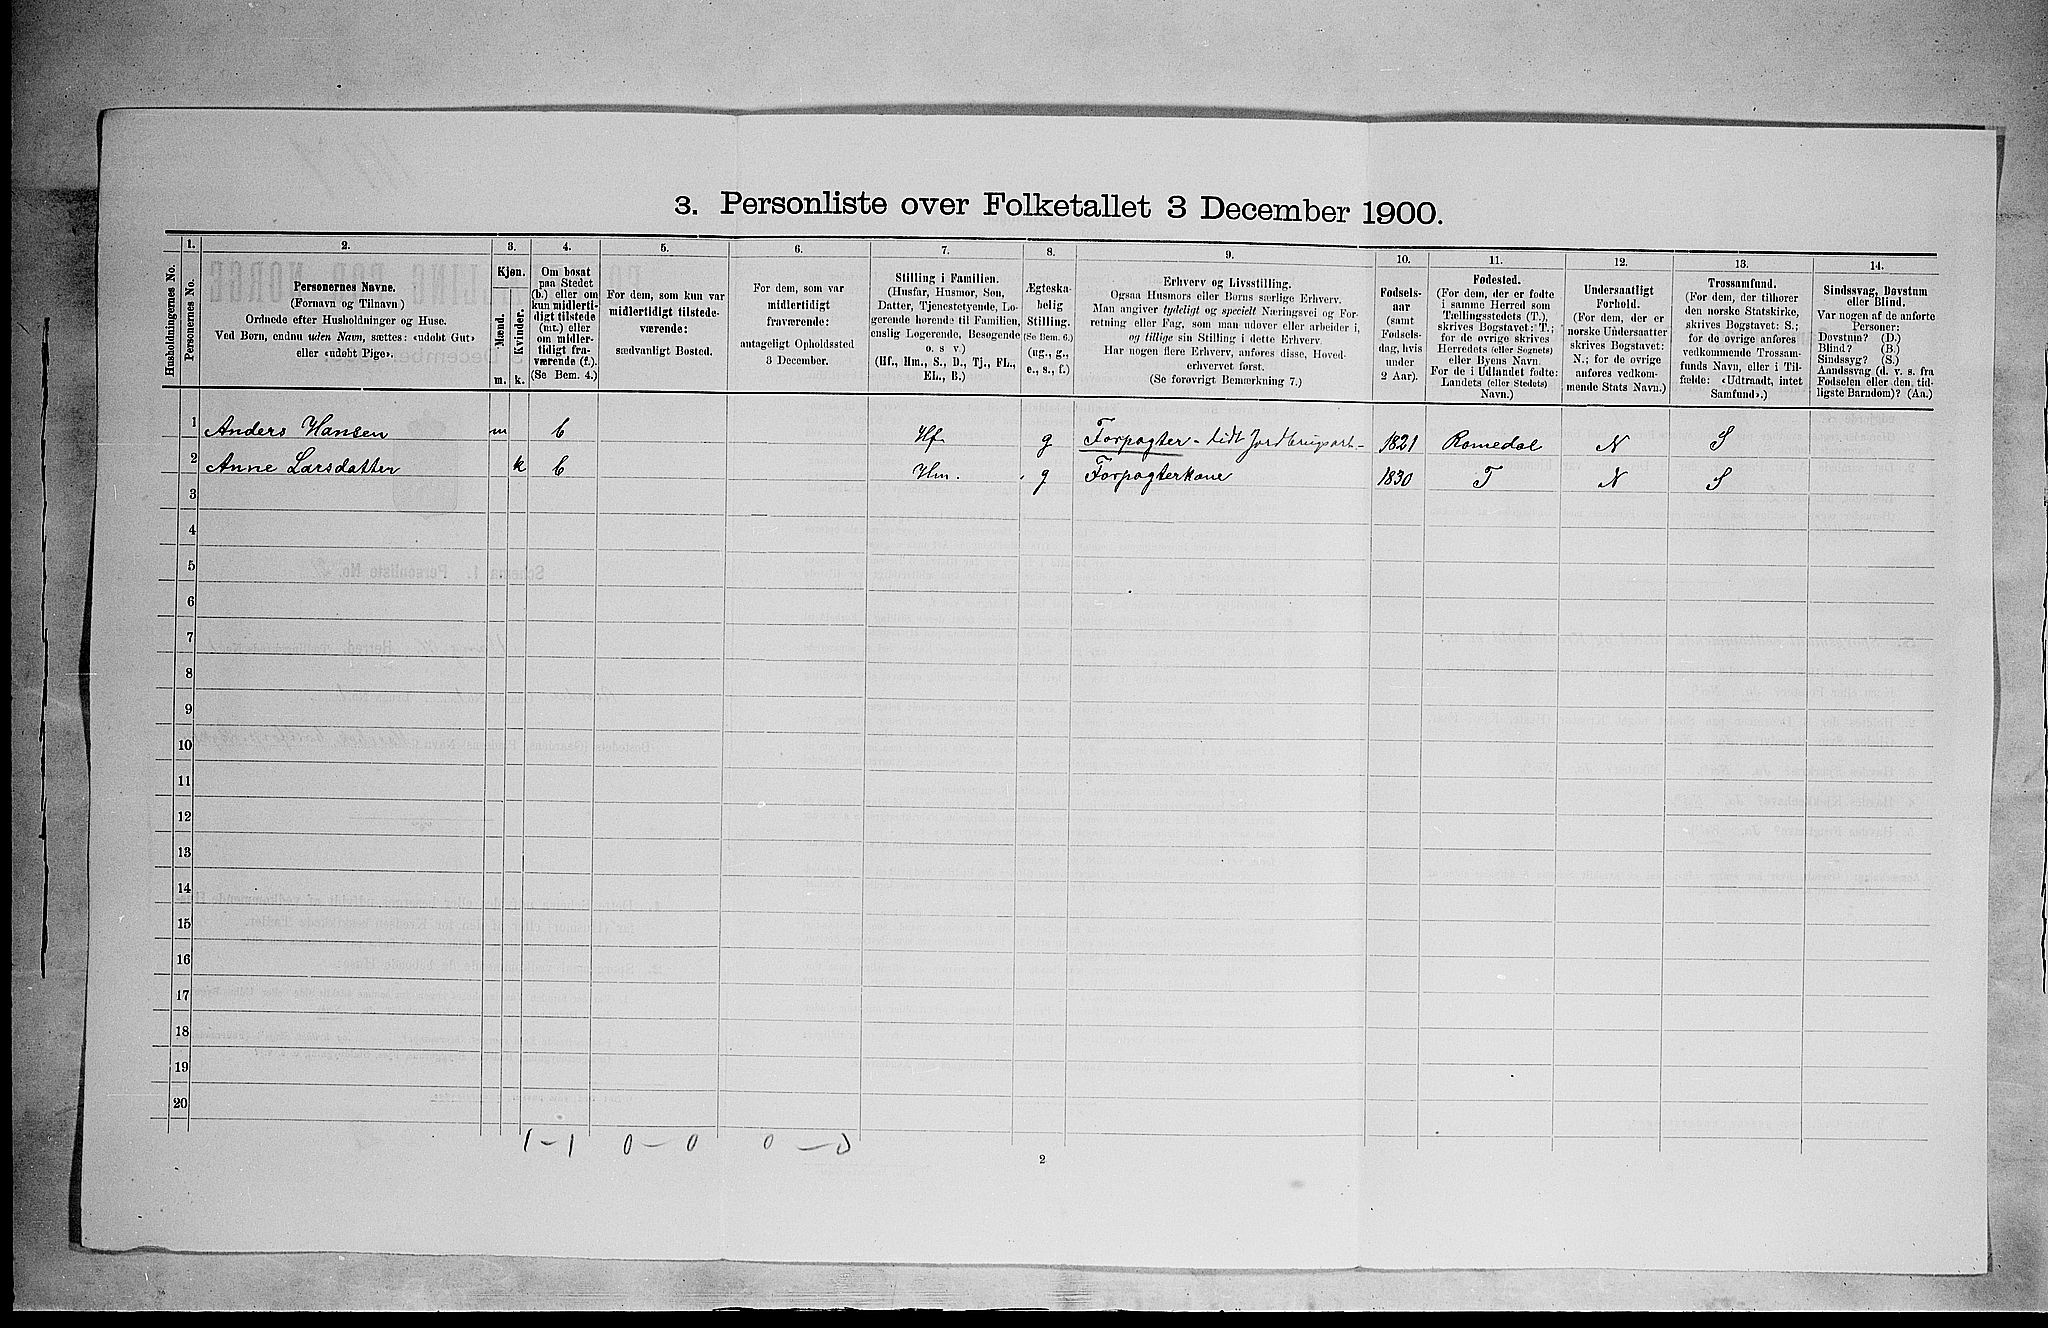 3. Personliste over Folketallet 3 December 1900.
1. 2. 3. 4. 5. 6. 7. 8. 9. 10. 11. 12. 13. 14.
Husholdningernes No.
Personernes No.
Personernes Navne.
(Fornavn og Tilnavn)
Ordnede efter Husholdninger og Huse.
Ved Børn, endnu uden Navn, sættes: «udøbt Gut»
eller «udøbt Pige».
Kjøn.
Mænd.
Kvinder.
m. k.
Om bosat
paa Stedet
(b.) eller om
kun midlerti-
digt tilstede
(mt.) eller
om midler-
tidigt fra-
værende (f.).
(Se Bem. 4.)
For dem, som kun var
midlertidigt tilstede-
værende:
sædvanligt Bosted.
For dem, som var
midlertidigt
fraværende:
antageligt Opholdssted
3 December.
Stilling i Familien.
(Husfar, Husmor, Søn,
Datter, Tjenestetyende, Lo-
gerende hørende til Familien,
enslig Logerende, Besøgende
o. s. v.)
(Hf., Hm., S., D., Tj., FL.,
EL., B.)
Ægteska-
belig
Stilling.
(Se Bem. 6.)
(ug., g.,
e., s., f.)
Erhverv og Livsstilling.
Ogsaa Husmors eller Børns særlige Erhverv.
Man angiver tydeligt og specielt Næringsvei og For-
retning eller Fag, som man udøver eller arbeider i,
og tillige sin Stilling i dette Erhverv.
Har nogen flere Erhverv, anføres disse, Hoved-
erhvervet først.
(Se forøvrigt Bemærkning 7.)
Fødsels-
aar
(samt
Fødsels-
dag, hvis
under
2 Aar).
Fødested.
(For dem, der er fødte
i samme Herred som
Tællingsstedets (T.),
skrives Bogstavet: T.;
for de øvrige skrives
Herredets (eller Sognets)
eller Byens Navn.
For de i Udlandet fødte:
Landets (eller Stedets)
Navn.)
Undersaatligt
Forhold.
(For dem, der er
norske Undersaatter
skrives Bogstavet:
N.; for de øvrige
anføres vedkom-
mende Stats Navn.)
Trossamfund.
(For dem, der tilhører
den norske Statskirke,
skrives Bogstavet: S.;
for de øvrige anføres
vedkommende Trossam-
funds Navn, eller i Til-
fælde: «Udtraadt, intet
Samfund».)
Sindssvag, Døvstum
eller Blind.
Var nogen af de anførte
Personer:
Døvstum? (D.)
Blind? (B.)
Sindssyg? (S.)
Aandssvag (d. v. s. fra
Fødselen eller den tid-
ligste Barndom)? (Aa.)
1 Anders Hansen m b Hf g Forpagter - lidt Jordbrugsarb. 1821 Romedal N S
2 Anne Larsdatter k b Hm. g Forpagterkone 1830 T N S
3
4
5
6
7
8
9
10
11
12
13
14
15
16
17
18
19
20
1 - 1 0 - 0 0 - 0
2